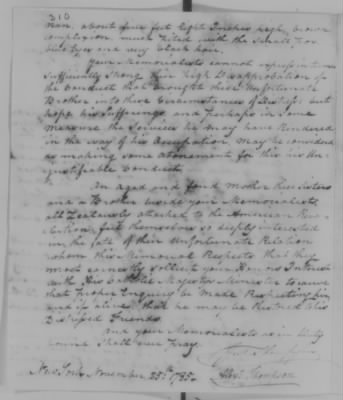 310
man, about five feet eight Inches high, brown
complexion much Pited with the Small Pox
blue Eyes and very black hair.
Your Memorialists cannot express in terms
Sufficiently Strong their high Disapprobation of
the Conduct that brought their Unfortunate
Brother into these Circumstances of Distress. but
hope his Sufferings, and perhaps in Some
measure the Services he may have Rendered
in the way of his Occupation, may be considered
as making some atonement for this his Un-
justifiable Conduct.
An aged and fond Mother five Sisters
and a Brother beside your Memorialists,
all Zealously attached to the American Rev-
olution, feel themselves so deeply interested
in the fate of their Unfortunate Relation
whom this Memorial Respects that they
most earnestly sollicit your Honors Interest
with His Catholic Majestys Minister to cause
that proper Enquiry be Made Respecting him
and if alive that he may be Restored to his
Distressed Friends
And your Memorialists as in Duty
bound Shall ever Pray
New York November 25th 1785.
Thompson